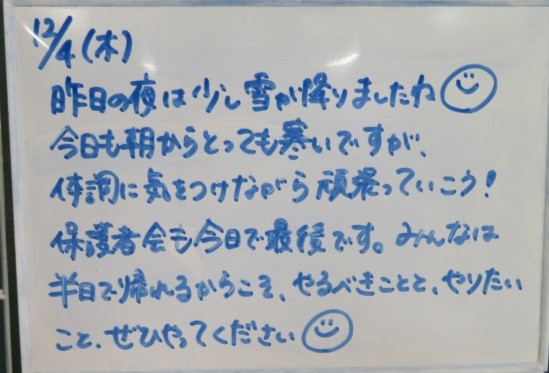 12/4(木)
昨日の夜は少し雪が降りましたね
今日も朝からとっても寒いですが、
体調に気をつけながら頑張っていこう!
保護者会も今日で最後です。みんなは
半日で帰れるからこそ、やるべきことと、やりたい
こと、ぜひやってください